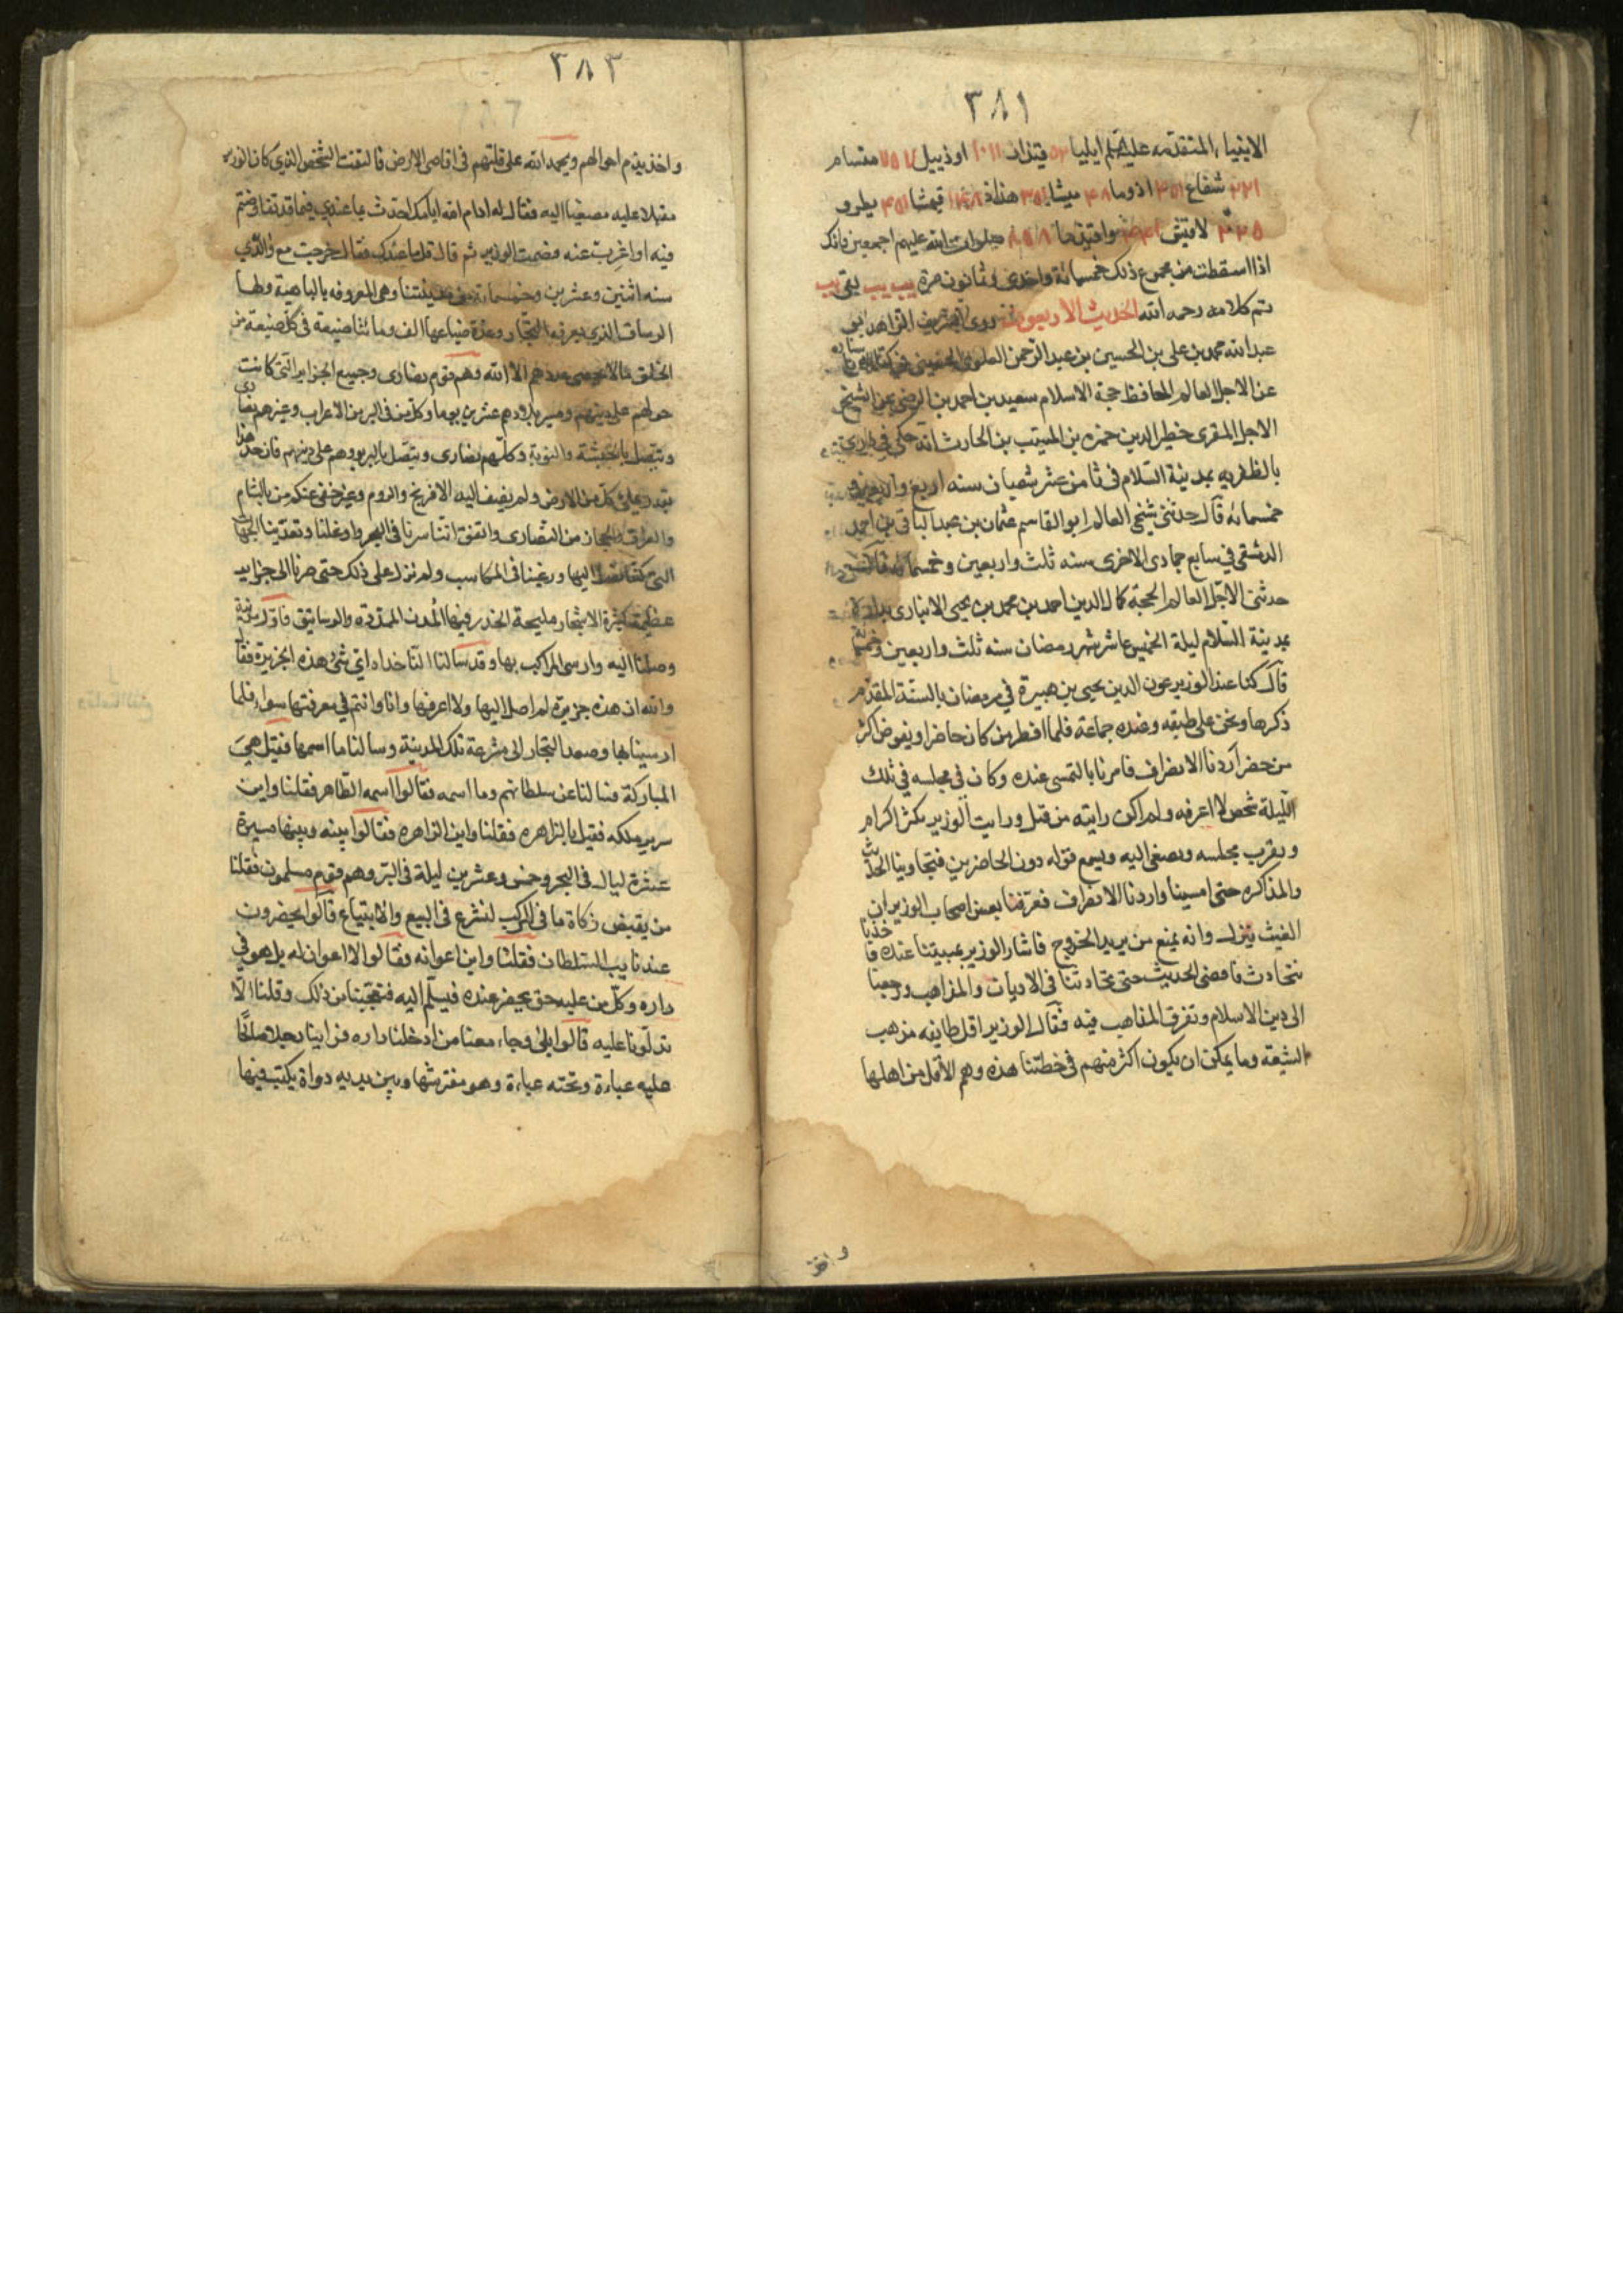 ٣٨١
الانبياء المتقدمه عليهم ايليا قيذار اوذيبيل مفسام
شفاع اذوما ميشا هذاذ قيمثا يطرو
لاقيتى صلوات الله عليهم اجمعين فانك
اذا اسقطت من مجموع ذلك خمسمائة واحدى وثمانون مرة يب يب بقى يب
تم كلامه رحمه الله الحديث الاربعون روى الشريف الزاهد ابو
عبد الله محمد بن على بن الحسين بن عبد الرحمن العلوى الحسينى فى
عن الاجل العالم الحافظ حجة الاسلام سعيد بن احمد بن الرضى عن الشيخ
الاجل المقرى خطير الدين حمزه بن المسيب بن الحارث انه حكى فى دارى
بالظفريه بمدينة السلام فى ثامن عشر شعبان سنه اربع واربعين و
خمسمائه قال حدثنى شيخى العالم ابو القاسم عثمان بن عبد الباقى بن احمد
الدمشقى فى سابع جمادى الاخرى سنه ثلث واربعين وخمسمائه قال
حدثنى الاجل العالم الحجة كمال الدين احمد بن محمد بن يحيى الانبارى بداره
بمدينة السلام ليلة الخميس عاشر شهر رمضان سنه ثلث واربعين وخمسمائة
قال كنا عند الوزير عون الدين يحيى بن هبيرة فى رمضان بالسنة المقدم
ذكرها ونحن على طبقه وعنده جماعة فلما افطر من كان حاضرا ويفوض اكثر
من حضر اردنا الانصراف فامرنا بالتمسى عنده وكان فى مجلسه فى تلك
الليلة شخص لا اعرفه ولم اكن رايته من قبل ورايت الوزير يكثر اكرام
ويقرب مجلسه ويصغى اليه ويسمع قوله دون الحاضرين فتجارينا الحديث
والمذاكره حتى امسينا واردنا الانصراف فعرفنا بعض اصحاب الوزير ان
الغيث ينزل وانه يمنع من يريد الخروج فاشار الوزير بمبيتنا عنده فاخذنا
نتحادث فافضى الحديث حتى تحادثنا فى الاديان والمذاهب ورجعنا
الى دين الاسلام وتفرق المذاهب فيه فقال الوزير اقل طايفه مذهب
الشيعة وما يمكن ان يكون اكثر منهم فى خطتنا هذه وهم الاقل من اهلها
واخذ
٣٨٣
واخذ يذم احوالهم ويحمد الله على قلتهم فى اقاصى الارض فالتفت الشخص الذى كان الوزير
مقبلا عليه مصغيا اليه فقال له ادام الله ايامك احدث بما عندى فيما قد تفاوضتم
فيه او اعرب عنه فصمت الوزير ثم قال قل ما عندك فقال خرجت مع والدى
سنه اثنين وعشرين وخمسمائة من مدينتنا وهى المعروفه بالباهية ولها
الرساق الذى يعرفه التجار وعدة ضياعها الف ومائتا ضيعة فى كل ضيعة من
الخلق مالا يحصى عددهم الا الله وهم قوم نصارى وجميع الجزاير التى كانت
حولهم على دينهم ومسير بلادهم عشرين يوما وكل من فى البر من الاعراب وغيرهم نصارى
وتتصل بالحبشة والنوبة وكلهم نصارى ويتصل بالبربر وهم على دينهم فان حد هذا
بقدر على كل من الارض ولم نضف اليه الافرنج والروم وغير خفى عنكم من بالشام
والعراق والحجاز من النصارى واتفق اننا سرنا فى البحر واوغلنا وتعدينا الجهات
التى كنا نصل اليها ورغبنا فى المكاسب ولم نزل على ذلك حتى صرنا الى جزاير
عظيمة كثيرة الاشجار مليحة الجدر فيها المدن المدوره والرساتيق فاول مدينة
وصلنا اليه وارسى المراكب بها وقد سالنا الناخداه اى شىء هذه الجزيرة فقال
والله ان هذه جزيرة لم اصل اليها ولا اعرفها وانا وانتم فى معرفتها سواء فلما
ارسينا بها وصعد التجار الى مشرعة تلك المدينة وسالنا ما اسمها فقيل هى
المباركة فسالنا عن سلطانهم وما اسمه فقالوا اسمه الطاهر فقلنا واين
سرير ملكه فقيل بالزاهره فقلنا واين الزاهره فقالوا بينه وبينها مسيرة
عشرة ليال فى البحر وخمس وعشرين ليلة فى البر وهم قوم مسلمون فقلنا
من يقبض زكاة ما فى المركب لنشرع فى البيع والابتياع قالوا يحضرون
عند نايب السلطان فقلنا واين اعوانه فقالوا لا اعوان له بل هو فى
داره وكل من عليه حق يحضر عنده فيسلم اليه فتعجبنا من ذلك وقلنا الا
تدلونا عليه قالوا بلى وجاء معنا من ادخلنا داره فراينا رجلا صالحا
عليه عباءة وتحته عباءة وهو مفترشها وبين يديه دواة يكتب فيها